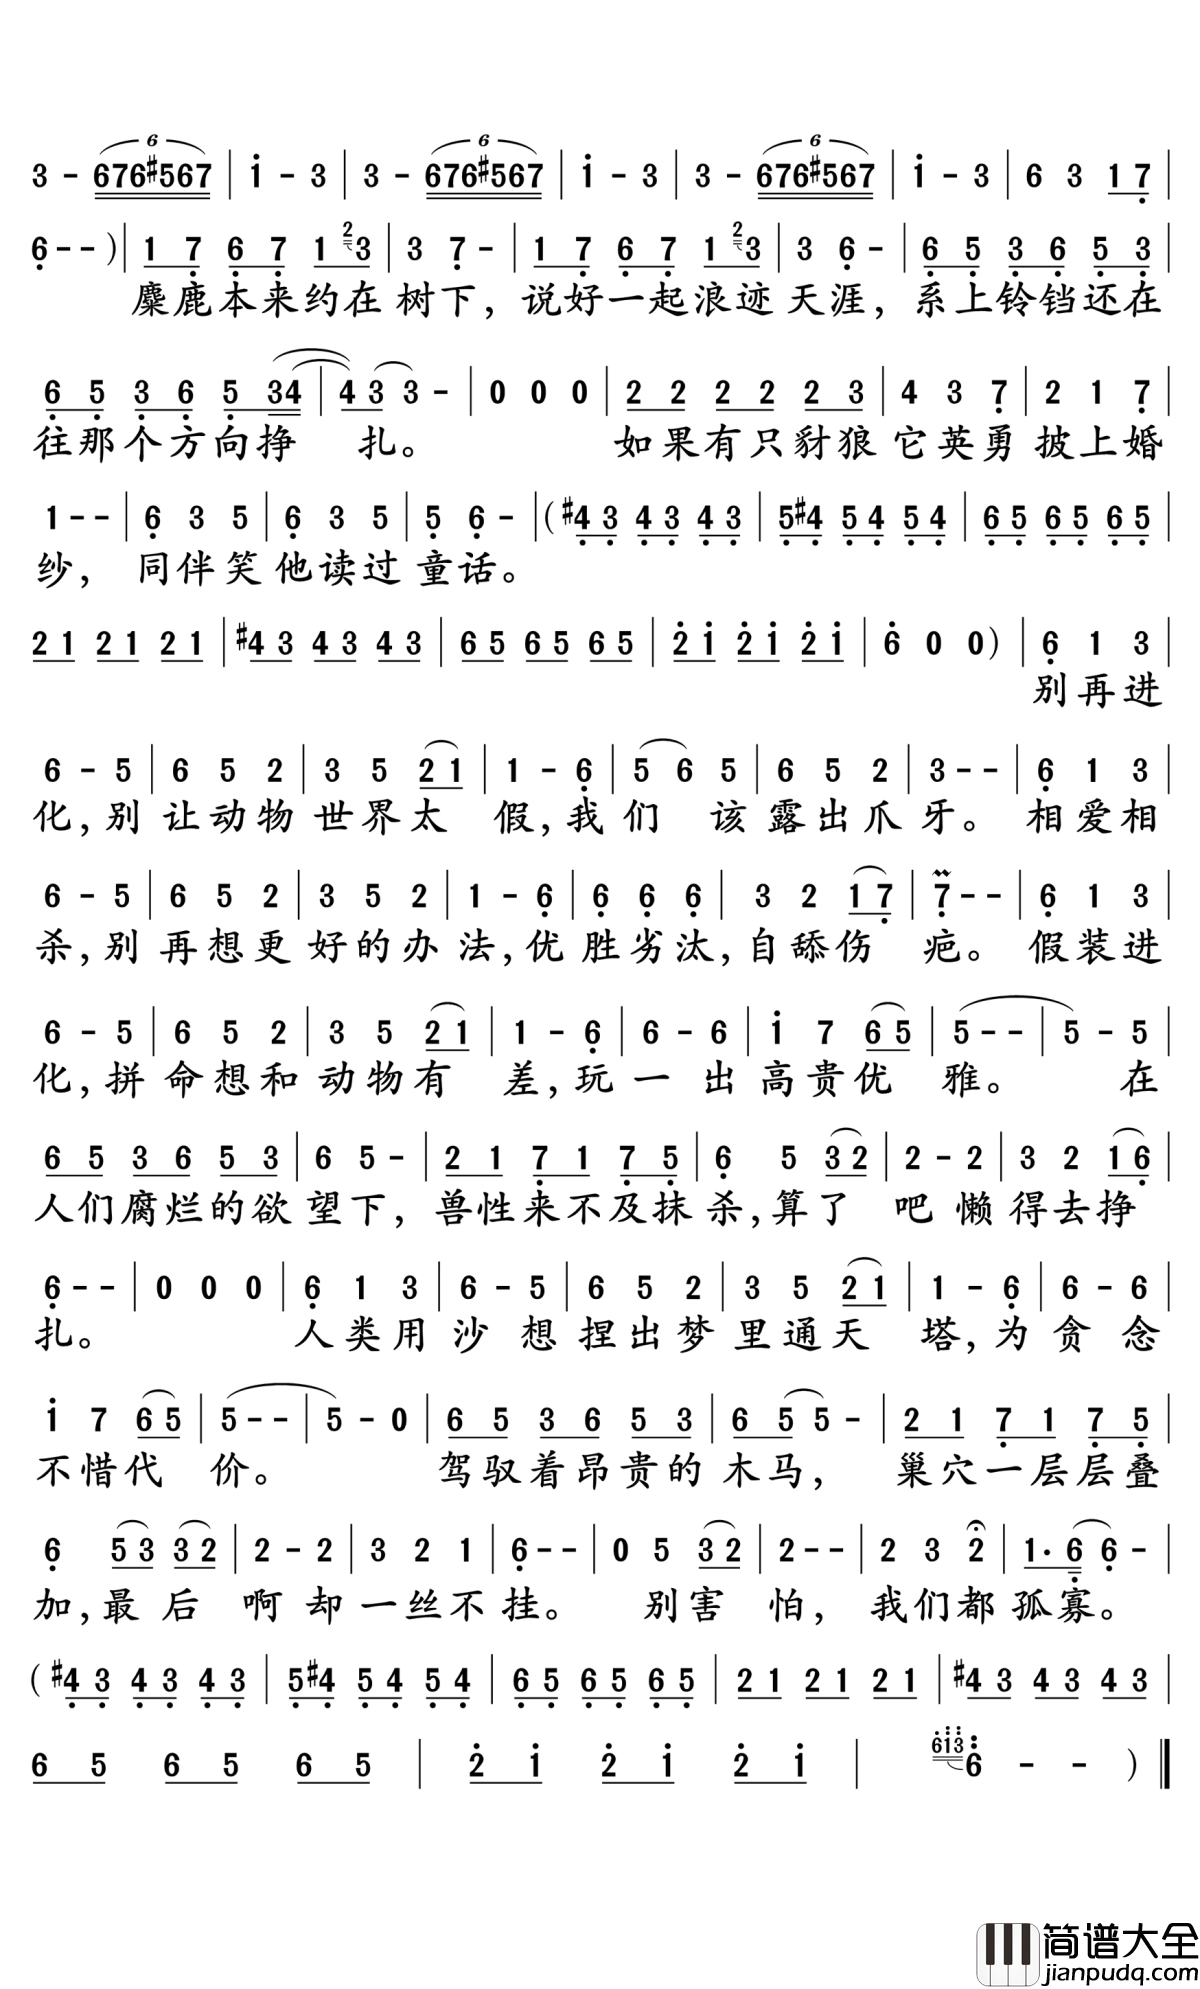 3 - 676#567 | i - 3 | 3 - 676#567 | i - 3 | 3 - 676#567 | i - 3 | 6 3 1 7 |
6 - - ) | 1 7 6 7 1 2 3 | 3 7 - | 1 7 6 7 1 2 3 | 3 6 - | 6 5 3 6 5 3 |
麋鹿本来约在树下，说好一起浪迹天涯，系上铃铛还在
6 5 3 6 5 34 | 4 3 3 - | 0 0 0 | 2 2 2 2 2 3 | 4 3 7 | 2 1 7 |
往那个方向挣 扎。 如果有只豺狼它英勇披上婚
1 - - | 6 3 5 | 6 3 5 | 5 6 - | ( #4 3 4 3 4 3 | 5 #4 5 4 5 4 | 6 5 6 5 6 5 |
纱，同伴笑他读过童话。
2 1 2 1 2 1 | #4 3 4 3 4 3 | 6 5 6 5 6 5 | 2 i 2 i 2 i | 6 0 0 ) | 6 1 3 |
别再进
6 - 5 | 6 5 2 | 3 5 2 1 | 1 - 6 | 5 6 5 | 6 5 2 | 3 - - | 6 1 3 |
化，别让动物世界太 假，我们 该露出爪牙。相爱相
6 - 5 | 6 5 2 | 3 5 2 | 1 - 6 | 6 6 6 | 3 2 1 7 | 7 - - | 6 1 3 |
杀，别再想更好的办法，优胜劣汰，自舔伤 疤。假装进
6 - 5 | 6 5 2 | 3 5 2 1 | 1 - 6 | 6 - 6 | i 7 6 5 | 5 - - | 5 - 5 |
化，拼命想和动物有 差，玩一出高贵优 雅。 在
6 5 3 6 5 3 | 6 5 - | 2 1 7 1 7 5 | 6 5 3 2 | 2 - 2 | 3 2 1 6 |
人们腐烂的欲望下，兽性来不及抹杀，算了 吧懒得去挣
6 - - | 0 0 0 | 6 1 3 | 6 - 5 | 6 5 2 | 3 5 2 1 | 1 - 6 | 6 - 6 |
扎。 人类用沙想捏出梦里通天 塔，为贪念
i 7 6 5 | 5 - - | 5 - 0 | 6 5 3 6 5 3 | 6 5 5 - | 2 1 7 1 7 5 |
不惜代 价。 驾驭着昂贵的木马， 巢穴一层层叠
6 5 3 3 2 | 2 - 2 | 3 2 1 | 6 - - | 0 5 3 2 | 2 - - | 2 3 2 | 1 · 6 6 - |
加，最后 啊却一丝不挂。 别害 怕，我们都孤寡。
( #4 3 4 3 4 3 | 5 #4 5 4 5 4 | 6 5 6 5 6 5 | 2 1 2 1 2 1 | #4 3 4 3 4 3 |
6 5 6 5 6 5 | 2 i 2 i 2 i | 6i3 6 - - )
简谱大全
jianpudq.com